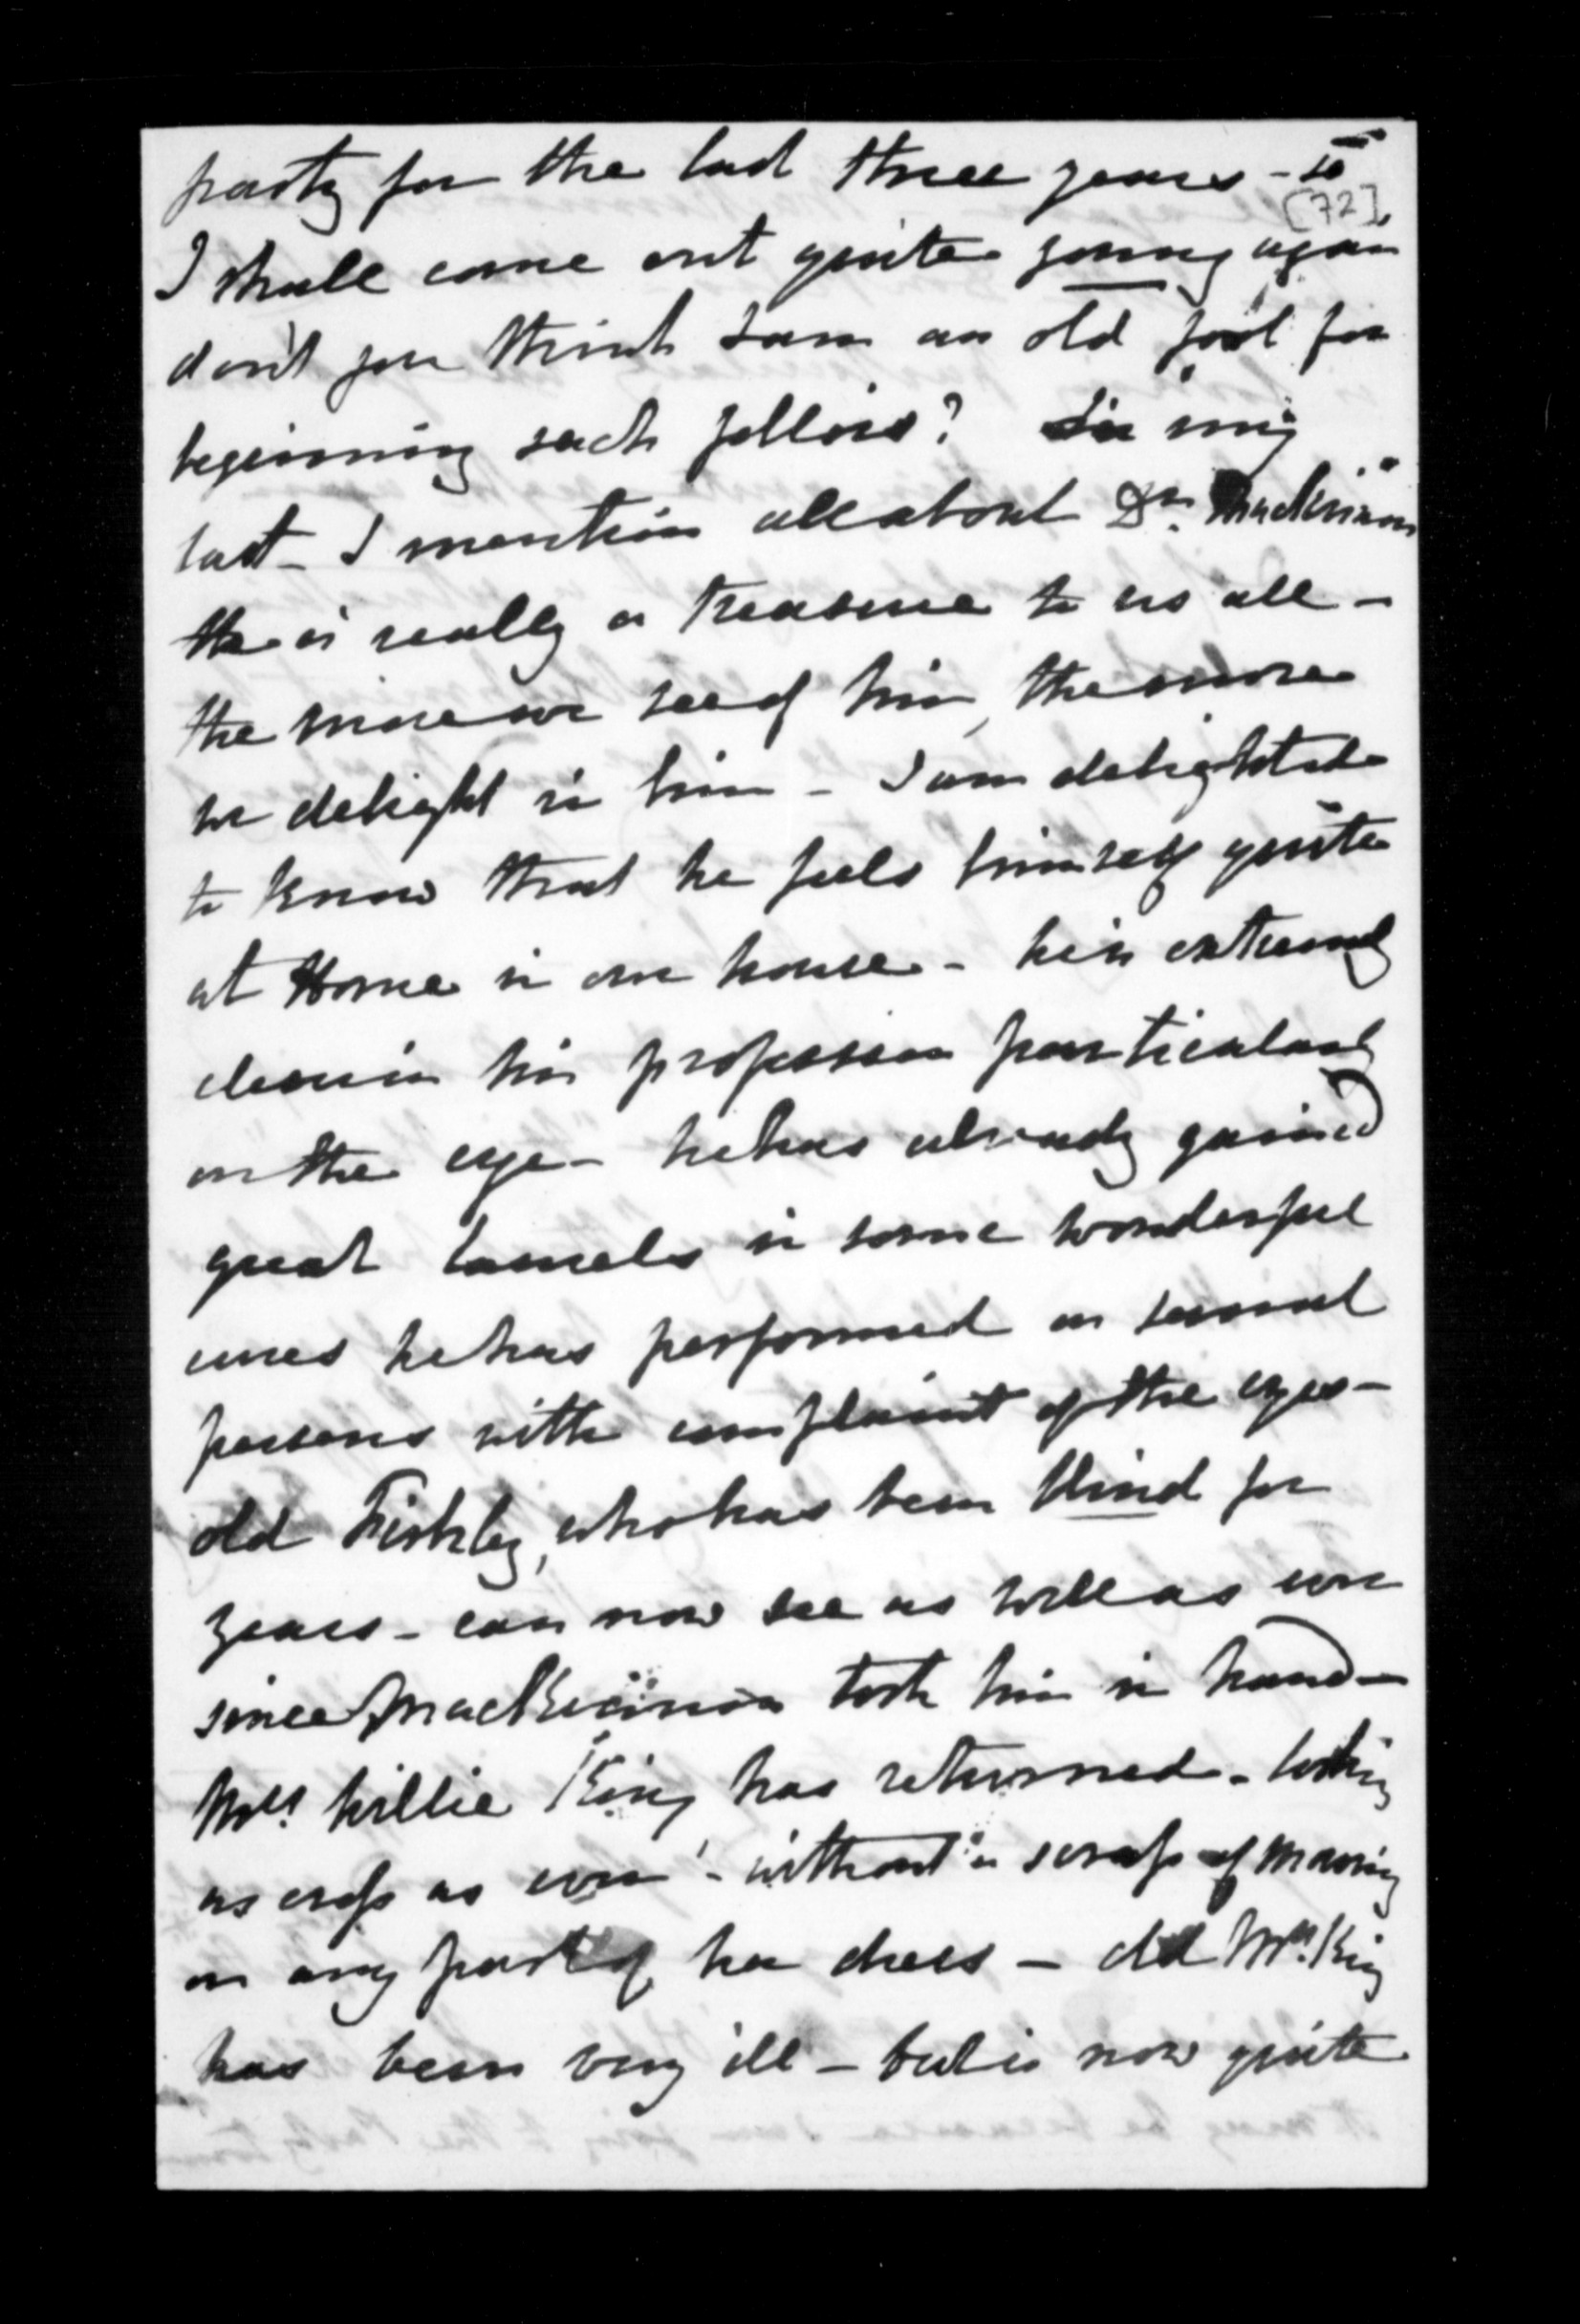 party for the last three years - so
[72]
I shall come out quite young again
don't you think I am an old fool for
beginning such follies? In my
last - I mention all about Dr. MacKinnon
he is really a treasure to us all -
the more we see of him, the more
we delight in him - I am delighted
to know that he feels himself quite
at Home in our house - he is extremely
clever in his profession particularly
on the eye - he has already gained
great laurels in some wonderful
cures he has performed on several
persons with complaint of the eyes -
old, who has been blind for
years - can now see as well as ever
since MacKinnon took him in hand -
Mrs. Willie King has returned - looking
as cross as ever - without a scrap of mourning
on any part of her dress - old Mrs. King
has been very ill - but is now quite